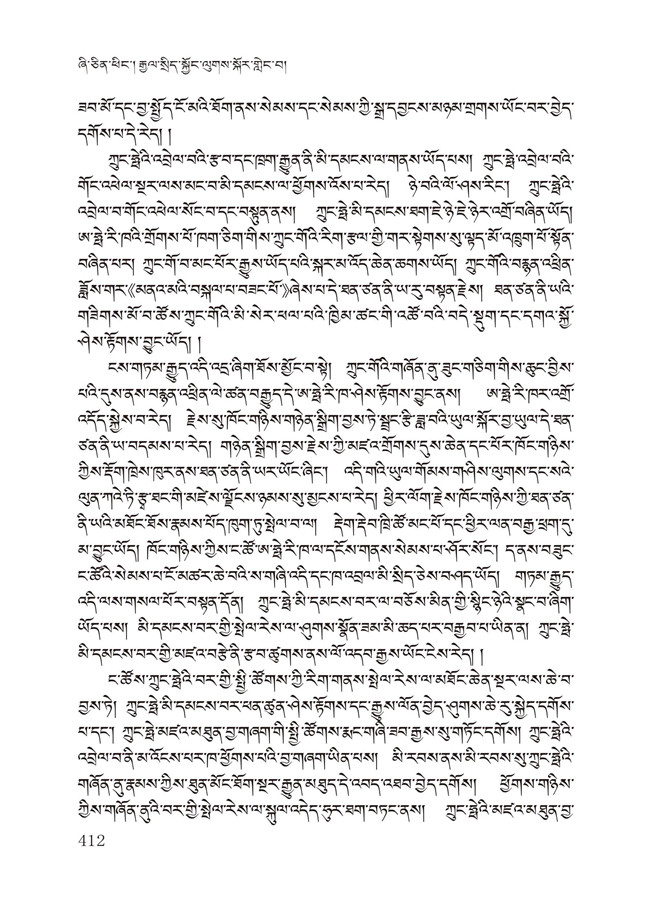 ཞི་ཅིན་ཕིང་། རྒྱལ་སྲིད་སྐྱོང་ལུགས་སྐོར་གླེང་བ།
ཟབ་མོ་དང་བྱ་སྤྱོད་ངོ་མའི་ཐོག་ནས་སེམས་དང་སེམས་ཀྱི་སྒྲ་དབྱངས་མཉམ་གྲགས་ཡོང་བར་བྱེད་
དགོས་པ་དེ་རེད། །
ཀྲུང་ཧྥེའི་འབྲེལ་བའི་རྩ་བ་དང་ཁྲག་རྒྱུན་ནི་མི་དམངས་ལ་གནས་ཡོད་པས། ཀྲུང་ཧྥེ་འབྲེལ་བའི་
གོང་འཕེལ་སྔར་ལས་མང་བ་མི་དམངས་ལ་ཕྱོགས་འོས་པ་རེད། ཉེ་བའི་ལོ་ཤས་རིང། ཀྲུང་ཧྥེའི་
འབྲེལ་བ་གོང་འཕེལ་སོང་བ་དང་བསྟུན་ནས། ཀྲུང་ཧྥེ་མི་དམངས་ཐག་ཇེ་ཉེ་ཇེ་ཉེར་འགྲོ་བཞིན་ཡོད།
ཨ་ཧྥེ་རི་ཁའི་གྲོགས་པོ་ཁག་ཅིག་གིས་ཀྲུང་གོའི་རིག་རྩལ་གྱི་གར་སྟེགས་སུ་ལྷད་མོ་འཁྲུག་པོ་སྟོན་
བཞིན་པར། ཀྲུང་གོ་བ་མང་པོར་རྒྱུས་ཡོད་པའི་སྐར་མ་འོད་ཆེན་ཆགས་ཡོད། ཀྲུང་གོའི་བརྙན་འཕྲིན་
ཟློས་གར་《མནའ་མའི་བསྐལ་པ་བཟང་པོ་》ཞེས་པ་དེ་ཐན་ཙན་ནི་ཡ་རུ་བསྟན་རྗེས། ཐན་ཙན་ནི་ཡའི་
གཟིགས་མོ་བ་ཚོས་ཀྲུང་གོའི་མི་སེར་ཕལ་པའི་ཁྱིམ་ཚང་གི་འཚོ་བའི་བདེ་སྡུག་དང་དགའ་སྐྱོ་
ཤེས་རྟོགས་བྱུང་ཡོད། །
ངས་གཏམ་རྒྱུད་འདི་འདྲ་ཞིག་ཐོས་མྱོང་བ་སྟེ། ཀྲུང་གོའི་གཞོན་ནུ་ཟུང་གཅིག་གིས་ཆུང་བྱིས་
པའི་དུས་ནས་བརྙན་འཕྲིན་ལེ་ཚན་བརྒྱུད་དེ་ཨ་ཧྥེ་རི་ཁ་ཤེས་རྟོགས་བྱུང་ནས། ཨ་ཧྥེ་རི་ཁར་འགྲོ་
འདོད་སྐྱེས་པ་རེད། རྗེས་སུ་ཁོང་གཉིས་གཉེན་སྒྲིག་བྱས་ཏེ་སྦྲང་རྩི་ཟླ་བའི་ཡུལ་སྐོར་བྱ་ཡུལ་དེ་ཐན་
ཙན་ནི་ཡ་བདམས་པ་རེད། གཉེན་སྒྲིག་བྱས་རྗེས་ཀྱི་མཛའ་གྲོགས་དུས་ཆེན་དང་པོར་ཁོང་གཉིས་
ཀྱིས་རྡོག་ཁྲེས་ཁུར་ནས་ཐན་ཙན་ནི་ཡར་ཡོང་ཞིང་། འདི་གའི་ཡུལ་གོམས་གཤིས་ལུགས་དང་སའེ་
ལུན་ཀའེ་ཏི་རྩྭ་ཐང་གི་མཛེས་ལྗོངས་ཉམས་སུ་མྱངས་པ་རེད། ཕྱིར་ལོག་རྗེས་ཁོང་གཉིས་ཀྱི་ཐན་ཙན་
ནི་ཡའི་མཐོང་ཐོས་རྣམས་པོད་ཁུག་ཏུ་སྤེལ་བ་ལ། རྡེག་རྡེབ་ཁྲི་ཚོ་མང་པོ་དང་ཕྱིར་ལན་བརྒྱ་ཕྲག་དུ་
མ་བྱུང་ཡོད། ཁོང་གཉིས་ཀྱིས་ང་ཚོ་ཨ་ཧྥེ་རི་ཁ་ལ་དངོས་གནས་སེམས་པ་ཤོར་སོང་། ད་ནས་བཟུང་
ང་ཚོའི་སེམས་པ་ངོ་མཚར་ཆེ་བའི་ས་གཞི་འདི་དང་ཁ་འབྲལ་མི་སྲིད་ཅེས་བཤད་ཡོད། གཏམ་རྒྱུད་
འདི་ལས་གསལ་པོར་བསྟན་དོན། ཀྲུང་ཧྥེ་མི་དམངས་བར་ལ་བཅོས་མིན་གྱི་སྙིང་ཉེའི་སྣང་བ་ཞིག་
ཡོད་པས། མི་དམངས་བར་གྱི་སྤེལ་རེས་ལ་ཤུགས་སྣོན་ཟམ་མི་ཆད་པར་བརྒྱབ་པ་ཡིན་ན། ཀྲུང་ཧྥེ་
མི་དམངས་བར་གྱི་མཛའ་བརྩེ་ནི་རྩ་བ་ཚུགས་ནས་ལོ་འདབ་རྒྱས་ཡོང་ངེས་རེད། །
ང་ཚོས་ཀྲུང་ཧྥེའི་བར་གྱི་སྤྱི་ཚོགས་ཀྱི་རིག་གནས་སྤེལ་རེས་ལ་མཐོང་ཆེན་སྔར་ལས་ཆེ་བ་
བྱས་ཏེ། ཀྲུང་ཧྥེ་མི་དམངས་བར་ཕན་ཚུན་ཤེས་རྟོགས་དང་རྒྱུས་ལོན་བྱེད་ཤུགས་ཆེ་རུ་སྐྱེད་དགོས་
པ་དང་། ཀྲུང་ཧྥེ་མཛའ་མཐུན་བྱ་གཞག་གི་སྤྱི་ཚོགས་རྨང་གཞི་ཟབ་རྒྱས་སུ་གཏོང་དགོས། ཀྲུང་ཧྥེའི་
འབྲེལ་བ་ནི་མ་འོངས་པར་ཁ་ཕྱོགས་པའི་བྱ་གཞག་ཡིན་པས། མི་རབས་ནས་མི་རབས་སུ་ཀྲུང་ཧྥེའི་
གཞོན་ནུ་རྣམས་ཀྱིས་ཐུན་མོང་ཐོག་སྔར་རྒྱུན་མཐུད་དེ་འབད་འཐབ་བྱེད་དགོས། ཕྱོགས་གཉིས་
ཀྱིས་གཞོན་ནུའི་བར་གྱི་སྤེལ་རེས་ལ་སྐུལ་འདེད་ཧུར་ཐག་བཏང་ནས། ཀྲུང་ཧྥེའི་མཛའ་མཐུན་བྱ་
412